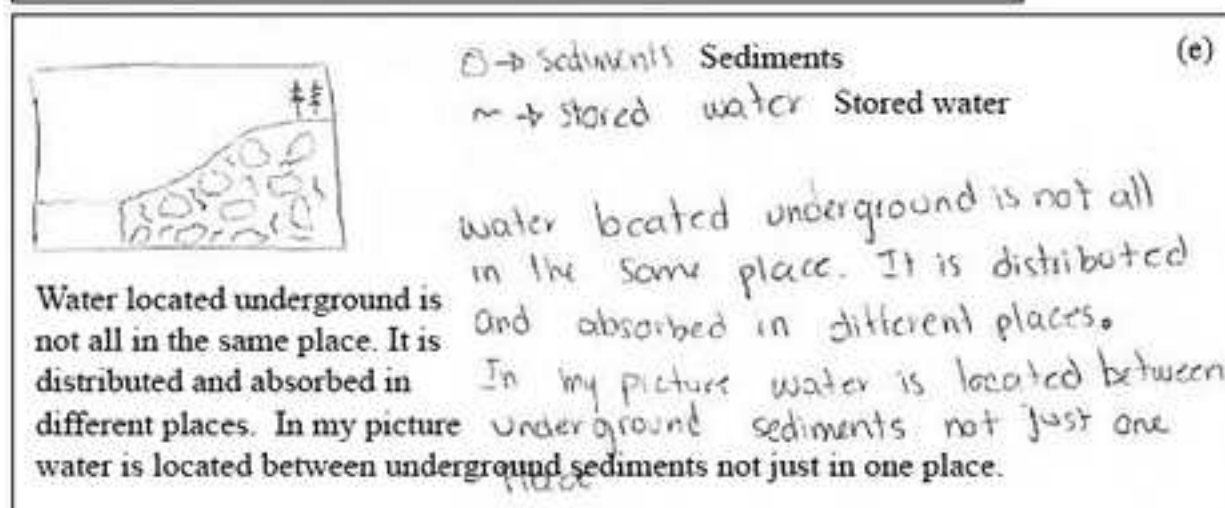 (e)
→ sediments Sediments
~ → stored water Stored water
water located underground is not all
in the same place. It is distributed
and absorbed in different places.
In my picture water is located between
underground sediments not just one
place
Water located underground is
not all in the same place. It is
distributed and absorbed in
different places. In my picture
water is located between underground sediments not just in one place.